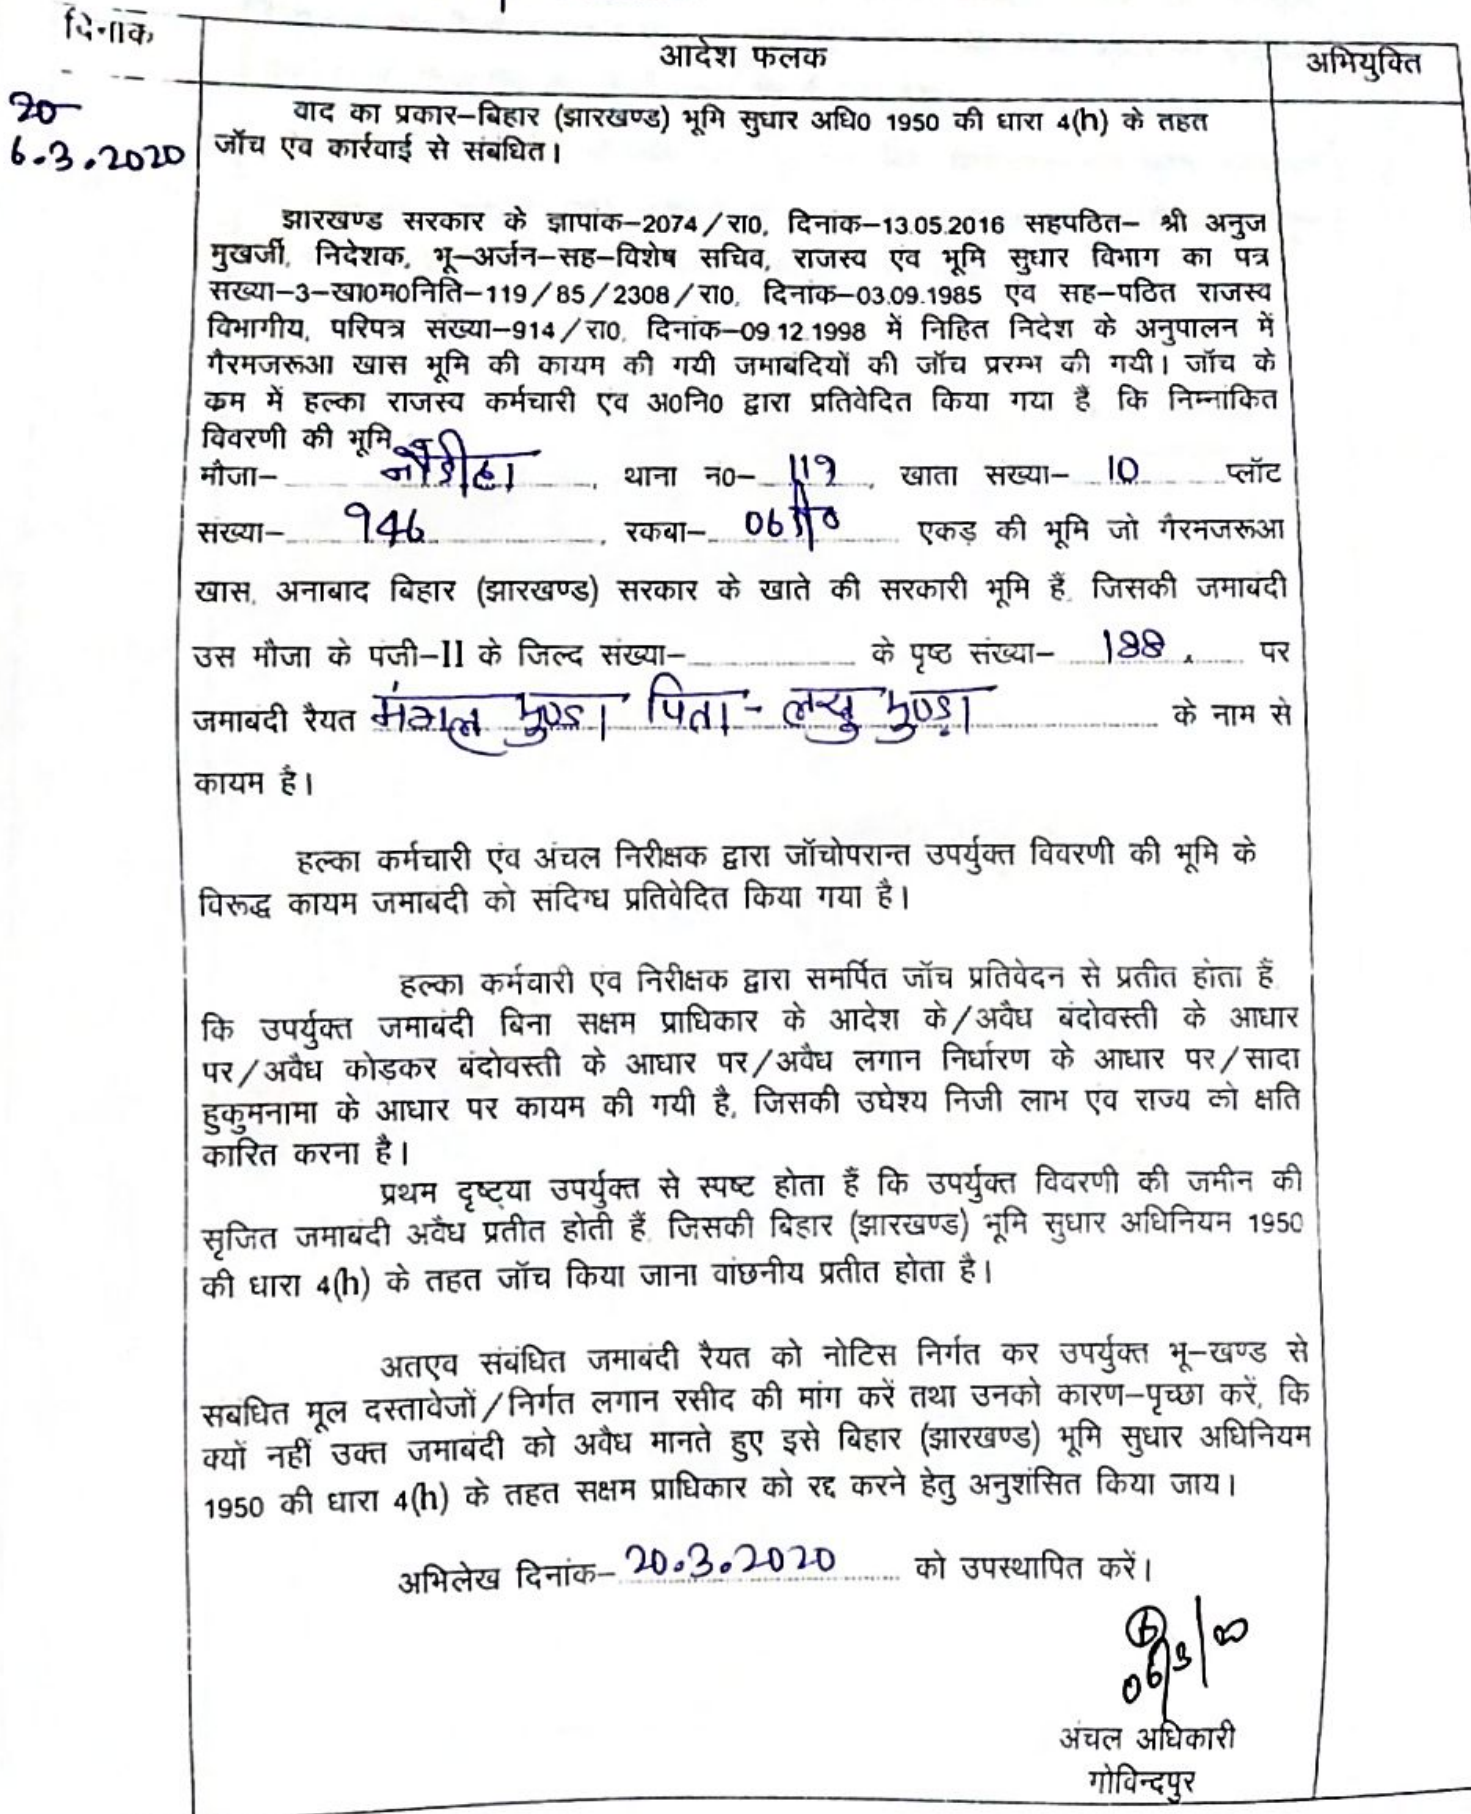 दिनांक
आदेश फलक
अभियुक्ति
20
6.3.2020
वाद का प्रकार–बिहार (झारखण्ड) भूमि सुधार अधि0 1950 की धारा 4(h) के तहत
जॉच एंव कार्रवाई से संबंधित।
झारखण्ड सरकार के ज्ञापांक–2074/रा0, दिनांक–13.05.2016 सहपठित– श्री अनुज
मुखर्जी, निदेशक, भू–अर्जन–सह–विशेष सचिव, राजस्व एंव भूमि सुधार विभाग का पत्र
सख्या–3–खा0म0निति–119/85/2308/रा0, दिनांक–03.09.1985 एंव सह–पठित राजस्व
विभागीय, परिपत्र संख्या–914/रा0, दिनांक–09.12.1998 में निहित निदेश के अनुपालन में
गैरमजरूआ खास भूमि की कायम की गयी जमाबंदियों की जॉच प्ररम्भ की गयी। जॉच के
कम में हल्का राजस्व कर्मचारी एंव अ0नि0 द्वारा प्रतिवेदित किया गया हैं, कि निम्नांकित
विवरणी की भूमि
मौजा– नौडीहा, थाना नं0– 119, खाता सख्या– 10 प्लॉट
संख्या– 946, रकबा– एकड़ की भूमि जो गैरमजरूआ
खास, अनाबाद बिहार (झारखण्ड) सरकार के खाते की सरकारी भूमि हैं, जिसकी जमाबंदी
उस मौजा के पंजी–II के जिल्द संख्या– के पृष्ठ संख्या– 188. पर
जमाबंदी रैयत मंगल मुण्डा पिता - लखु मुण्डा के नाम से
कायम है।
हल्का कर्मचारी एंव अंचल निरीक्षक द्वारा जॉचोपरान्त उपर्युक्त विवरणी की भूमि के
विरूद्ध कायम जमाबंदी को संदिग्ध प्रतिवेदित किया गया है।
हल्का कर्मचारी एंव निरीक्षक द्वारा समर्पित जॉच प्रतिवेदन से प्रतीत होता हैं,
कि उपर्युक्त जमाबंदी बिना सक्षम प्राधिकार के आदेश के/अवैध बंदोवस्ती के आधार
पर/अवैध कोडकर बंदोवस्ती के आधार पर/अवैध लगान निर्धारण के आधार पर/सादा
हुकुमनामा के आधार पर कायम की गयी है, जिसकी उघेश्य निजी लाभ एंव राज्य को क्षति
कारित करना है।
प्रथम दृष्ट्या उपर्युक्त से स्पष्ट होता हैं कि उपर्युक्त विवरणी की जमीन की
सृजित जमाबंदी अवैध प्रतीत होती हैं, जिसकी बिहार (झारखण्ड) भूमि सुधार अधिनियम 1950
की धारा 4(h) के तहत जॉच किया जाना वांछनीय प्रतीत होता है।
अतएव संबंधित जमाबंदी रैयत को नोटिस निर्गत कर उपर्युक्त भू–खण्ड से
सबंधित मूल दस्तावेजों/निर्गत लगान रसीद की मांग करें तथा उनको कारण–पृच्छा करें, कि
क्यों नहीं उक्त जमाबंदी को अवैध मानते हुए इसे बिहार (झारखण्ड) भूमि सुधार अधिनियम
1950 की धारा 4(h) के तहत सक्षम प्राधिकार को रद्द करने हेतु अनुशंसित किया जाय।
अभिलेख दिनांक– 20.3.2020 को उपस्थापित करें।
06/3/20
अंचल अधिकारी
गोविन्दपुर